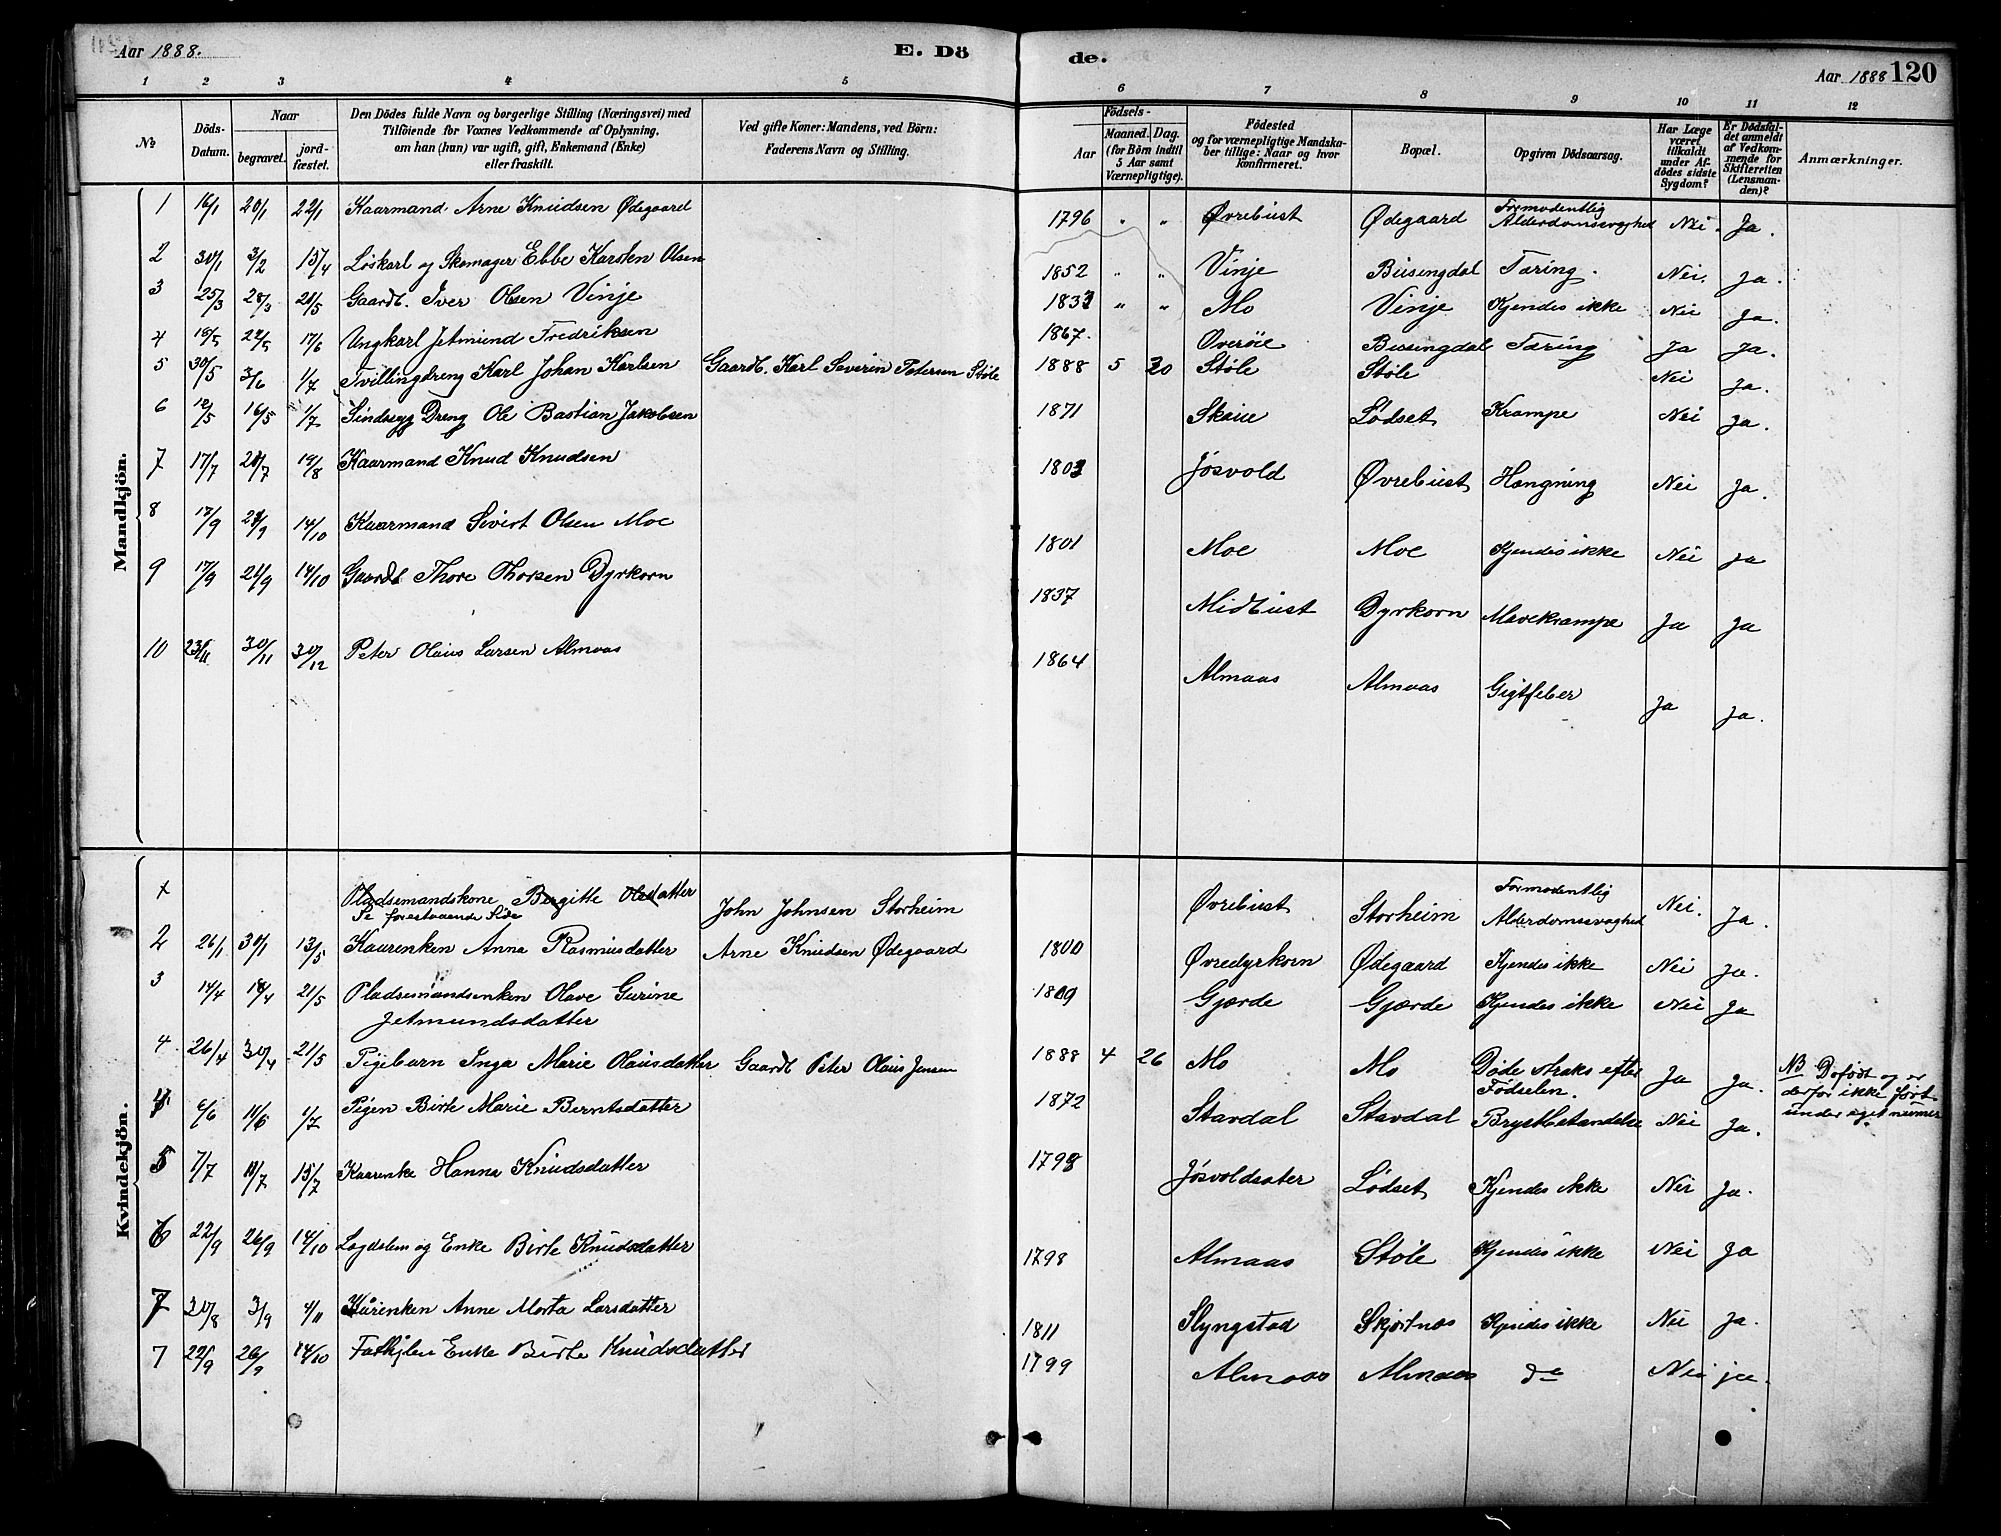 Aar 1888. E. Dö de. Aar 1888 120
1 2 3 4 5 6 7 8 9 10 11 12
No Döds-Datum. Naar begravet. jord-fæstet. Den Dödes fulde Navn og borgerlige Stilling (Næringsvei) med Tilföiende for Voxnes Vedkommende af Oplysning, om han (hun) var ugift, gift, Enkemand (Enke) eller fraskilt. Ved gifte Koner: Mandens, ved Börn: Faderens Navn og Stilling. Födsels- Aar Maaned. Dag. (for Börn indtil 5 Aar samt Værnepligtige). Födested og for værnepligtige Mandskaber tillige: Naar og hvor konfirmeret. Bopæl. Opgiven Dödsaarsag. Har Læge været tilkaldt under Afdödes sidste Sygdom? Er Dödsfaldet anmeldt af Vedkommende for Skifteretten (Lensmanden)? Anmærkninger.
Mandkjön.
1 16/1 20/1 22/1 Kaarmand Arne Knudsen Ødegaard 1796 " " Øvrebust Ødegaard Formodentlig Alderdomssvaghed Nei. Ja.
2 30/1 3/2 15/4 Løskarl og Skomager Ebbe Karsten Olsen 1852 " " Vinje Busengdal Tæring. Nei. Ja.
3 25/3 28/3 21/5 Gaardb. Iver Olsen Vinje 1833 " " Mo Vinje Kjendes ikke Nei Ja.
4 19/5 24/5 17/6 Ungkarl Jetmund Fredriksen 1867. Overøie Busengdal Tæring Ja Ja.
5 30/5 3/6 1/7 Tvillingdreng Karl Johan Karlsen Gaardb. Karl Severin Petersen Støle 1888 5 20 Støle Støle Nei Ja.
6 12/5 16/5 1/7 Sindssyg Dreng Ole Bastian Jakobsen 1871 Skaue Lødset Krampe Nei Ja.
7 17/7 21/7 19/8 Kaarmand Knud Knudsen 1803 Jøsvold Øvrebust Hængning Nei Ja.
8 17/9 21/9 14/10 Kaarmand Sivert Olsen Moe 1801 Moe Moe Kjendes ikke Nei Ja
9 17/9 21/9 14/10 Gaardb Thore Thorsen Dyrkorn 1837 Midtbust Dyrkorn Mavekrampe Ja Ja
10 23/11 30/11 30/12 Peter Olaus Larsen Almaas 1864 Almaas Almaas Gigtfeber Ja Ja.
Kvindekjön.
Pladsemandskone Bergitte Olsdatter John Johnsen Storheim Øvrebust Storheim Formodentlig Alderdomssvaghed Nei. Ja.
Se forestaaende Side
2 26/1 30/1 13/5 Kaarenken Anna Rasmusdatter Arne Knudsen Ødegaard 1800 Øvredyrkorn Ødegaard Kjendes ikke Nei Ja.
3 14/4 18/4 21/5 Pladsemandsenken Olave Gurine 1809 Gjærde Gjærde Kjendes ikke Nei Ja
Jetmundsdatter
4 26/4 30/4 21/5 Pigebarn Inga Marie Olausdatter Gaardb Peter Olaus Jensen 1888 4 26 Mo Mo Døde straks efter Fødselen. Ja Ja. NB Døfødt og er derfor ikke ført under eget nummer.
4 6/6 11/6 1/7 Pigen Birte Marie Berntsdatter 1872 Stavdal Stavdal Brystbetændelse Nei Ja.
5 7/7 11/7 15/7 Kaarenke Hanna Knudsdatter 1798 Jøsvoldsæter Lødset Kjendes ikke Nei Ja.
6 22/9 26/9 14/10 Lægdslem og Enke Birte Knudsdatter 1798 Almaas Støle Kjendes ikke Nei Ja
7 30/8 3/9 4/11 Kårenken Anne Marta Larsdatter 1811 Slyngstad Skjortnæs Kjendes ikke Nei Ja.
7 22/9 26/9 14/10 Enke Birte Knudsdatter 1799 Almaas Almaas do Nei ja.